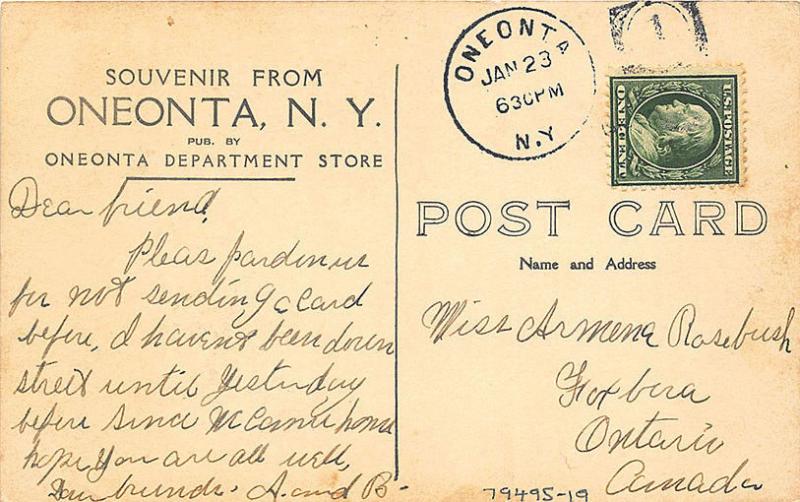 SOUVENIR FROM
ONEONTA, N. Y.
PUB. BY
ONEONTA DEPARTMENT STORE
Dear friend,
Pleas pardon us
for not sending a card
before, I havent been down
street until Yesterday
before since we came home
hope you are all well,
friends. A. and B-
ONEONTA
JAN 23
630PM
N.Y
1
U.S. POSTAGE
ONE CENT
POST CARD
Name and Address
Miss Armena Rosebush
Foxbora
Ontario
Canada
79495-19